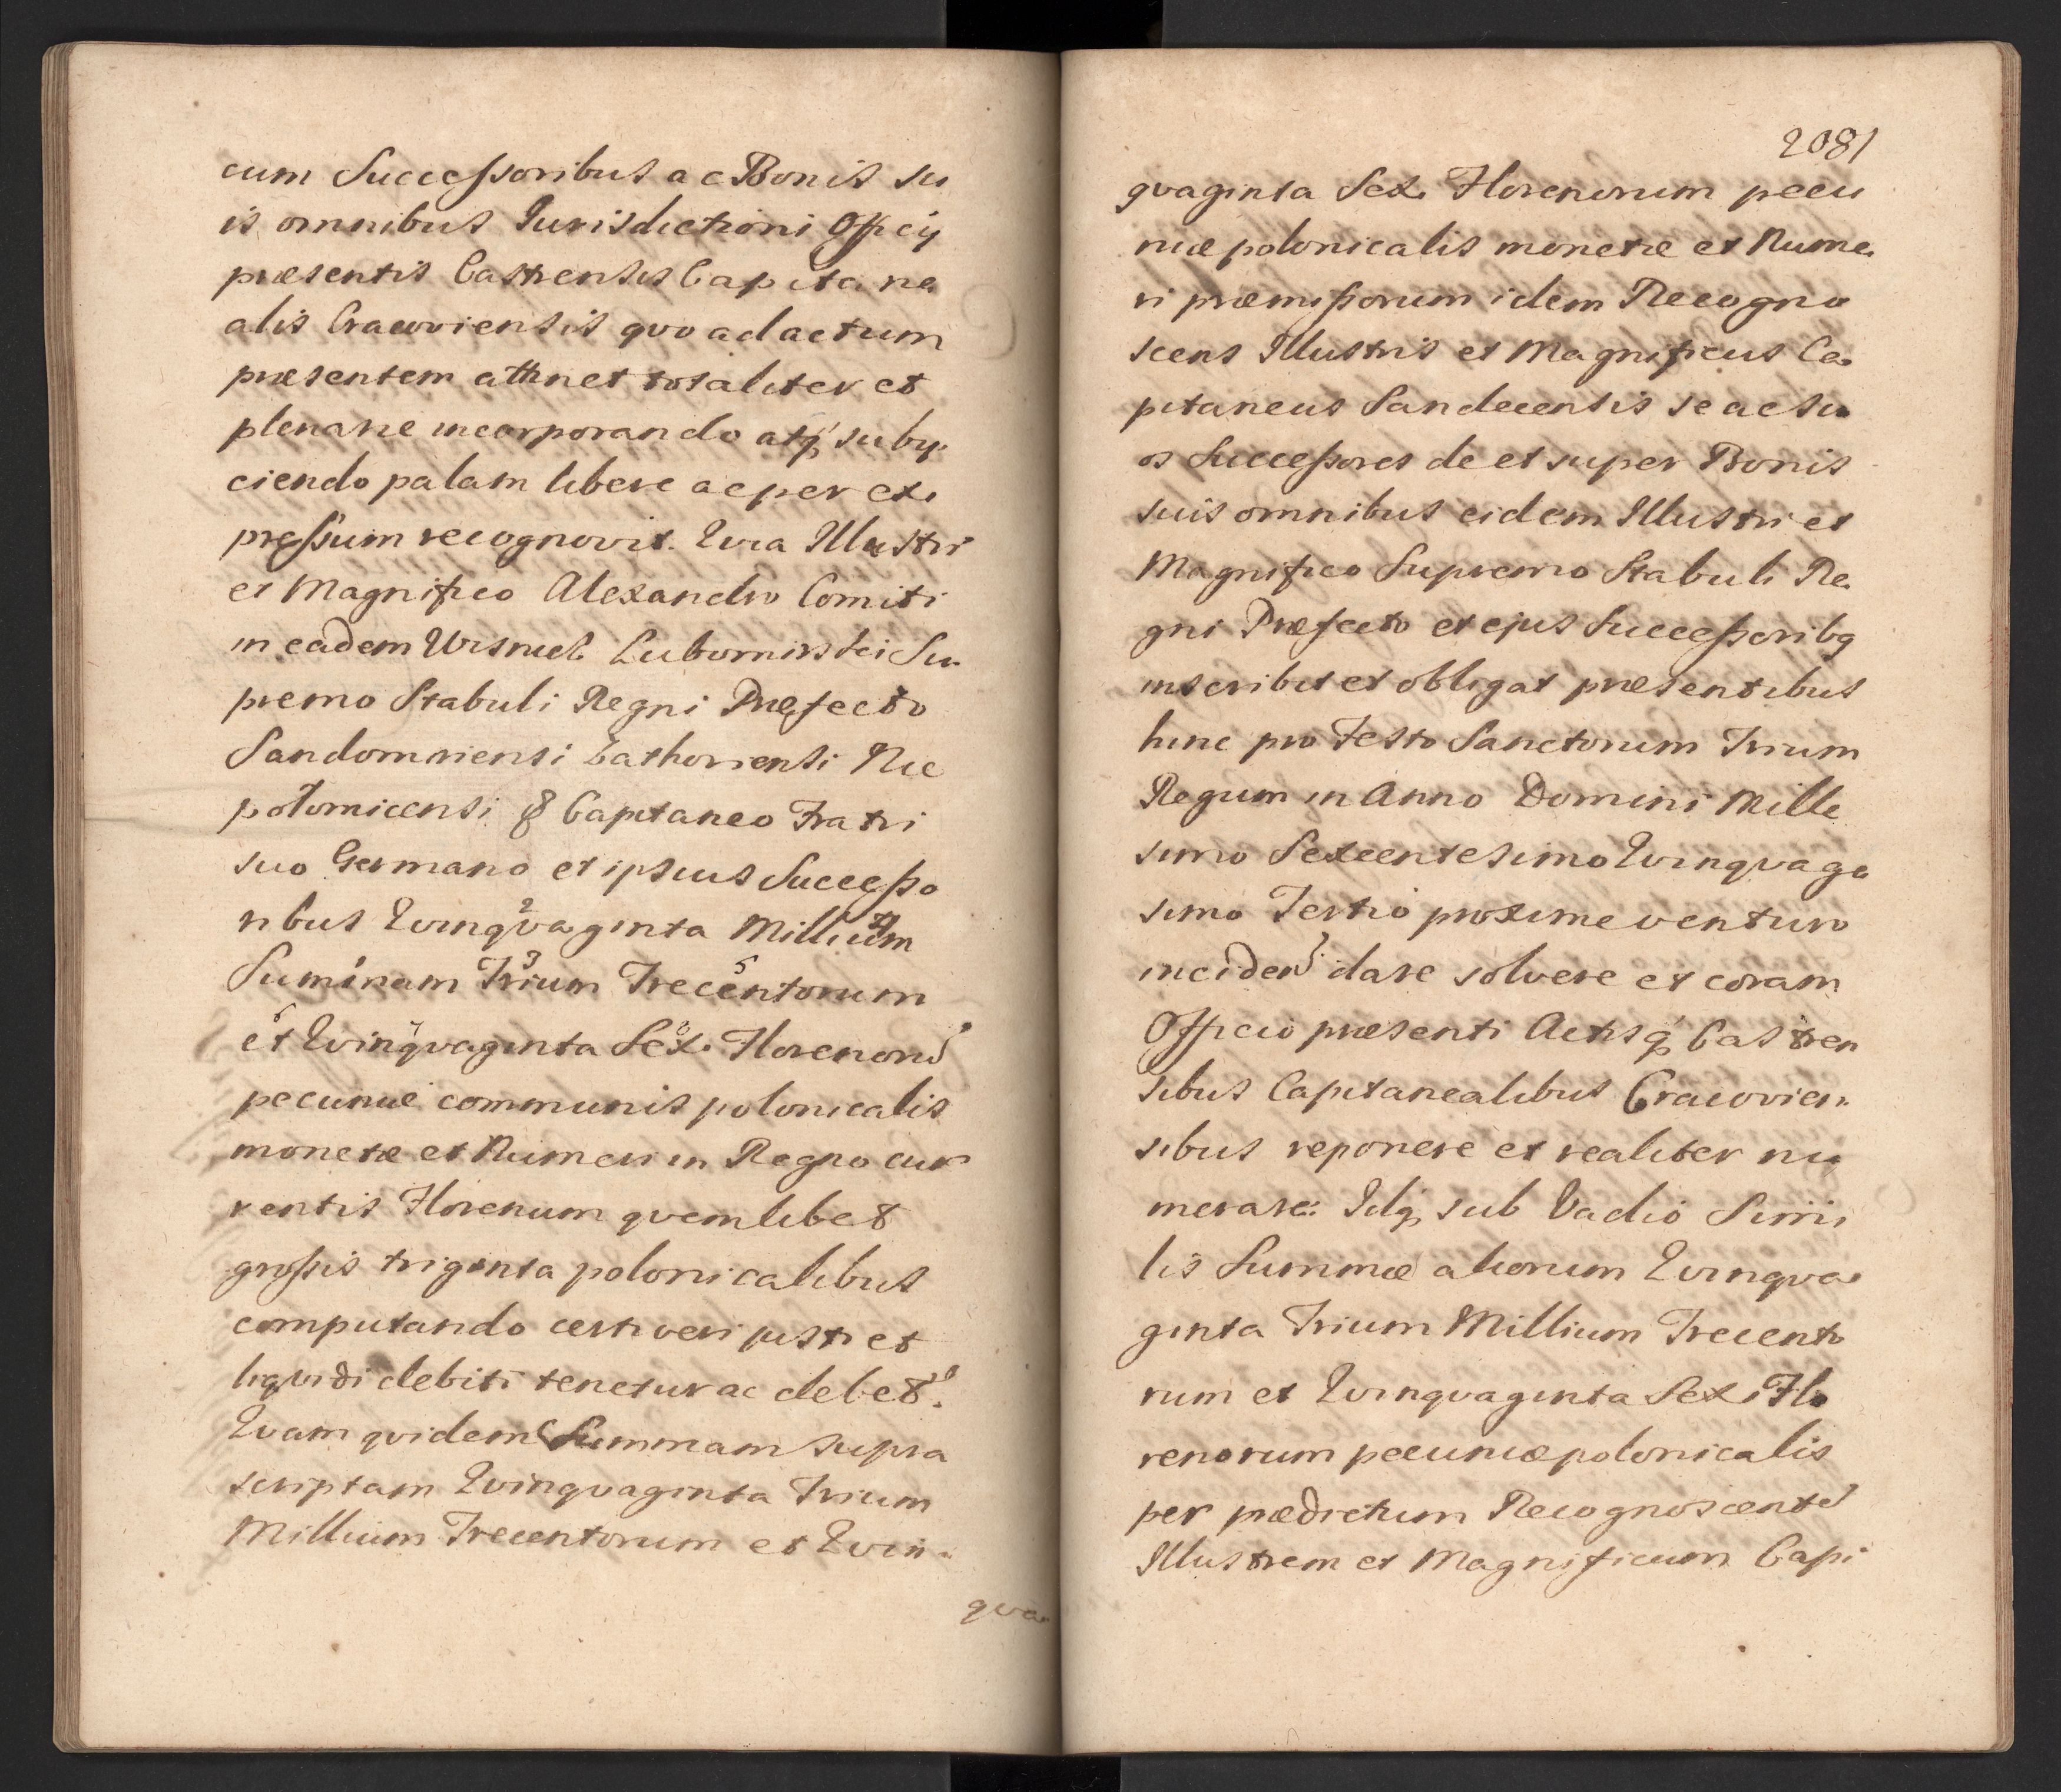 cum Successoribus ac Bonis su
is omnibus Jurisdictioni Officij
præsentis Castrensis Capitane
alis Cracoviensis qvo ad actum
præsentem attinet totaliter et
plenarie incorporando atq; subij
ciendo palam libere ac per ex
pressum recognovit. Qvia Illustri
et Magnifico Alexandro Comiti
in eadem Visnicz Lubomirski Su
premo Stabuli Regni Præfecto
Sandomiriensi Zathoriensi Nie
polomicensi & Capitaneo Fratri
suo Germano et ipsius Successo
ribus Qvinqvaginta Millium
Summam Trium Trecentorum
et Qvinqvaginta Sex Florenorũ
pecuniæ communis polonicalis
monetæ et Numeri in Regno cur
rentis Florenum qvemlibet
grossis triginta polonicalibus
computando certi veri justi et
liqvidi debiti tenetur ac debet.
Qvam qvidem Summam supra
scriptam Qvinqvaginta Trium
Millium Trecentorum et Qvin
qva
2081
qvaginta Sex Florenorum pecu
niæ polonicalis monetæ et Nume
ri præmissorum idem Recogno
scens Illustris et Magnificus Ca
pitaneus Sandecensis se ac su
os Successores de et super Bonis
suis omnibus eidem Illustri et
Magnifico Supremo Stabuli Re
gni Præfecto et ejus Successoribq
inscribit et obligat præsentibus
hinc pro Festo Sanctorum Trium
Regum in Anno Domini Mille
simo Sexcentesimo Qvinqvage
simo Tertio proxime venturo
inciden̄ dare solvere et coram
Officio præsenti Actisq; Castren
sibus Capitanealibus Cracovien
sibus reponere et realiter nu
merare: Idq; sub Vadio Simi
lis Summæ aliorum Qvinqva
ginta Trium Millium Trecento
rum et Qvinqvaginta Sex Flo
renorum pecuniæ polonicalis
per prædictum Recognoscentẽ
Illustrem et Magnificum Capi